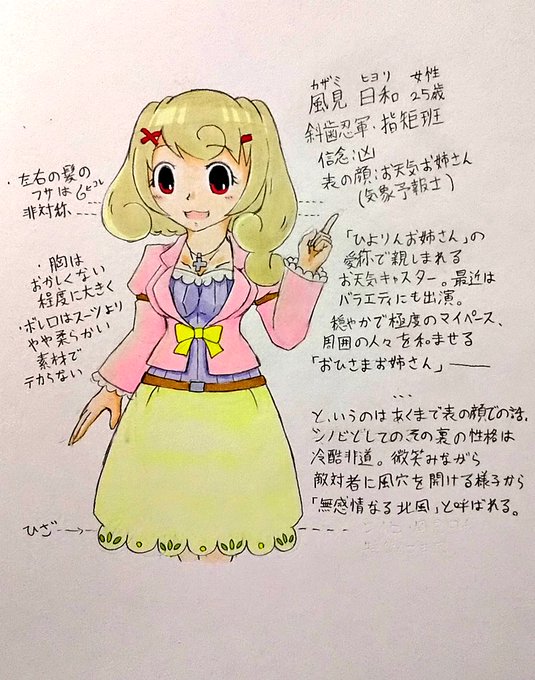 カザミ ヒヨリ 女性
風見 日和 25歳
斜歯忍軍・指矩班
信念:凶
表の顔:お天気お姉さん
(気象予報士)
「ひよりんお姉さん」の
愛称で親しまれる
お天気キャスター。最近は
バラエティにも出演。
穏やかで極度のマイペース、
周囲の人々を和ませる
「おひさまお姉さん」――
…
と、いうのはあくまで表の顔での話。
シノビとしてのその裏の性格は
冷酷非道。微笑みながら
敵対者に風穴を開ける様子から
「無感情なる北風」と呼ばれる。
・左右の髪の
フサは
非対称
・胸は
おかしくない
程度に大きく
・ボレロはスーツより
やや柔らかい
素材で
テカらない
ひざ